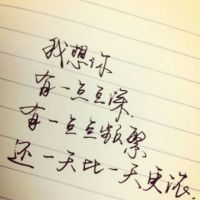 我想你
有一点点深
有一点点频繁
还一天比一天更浓.